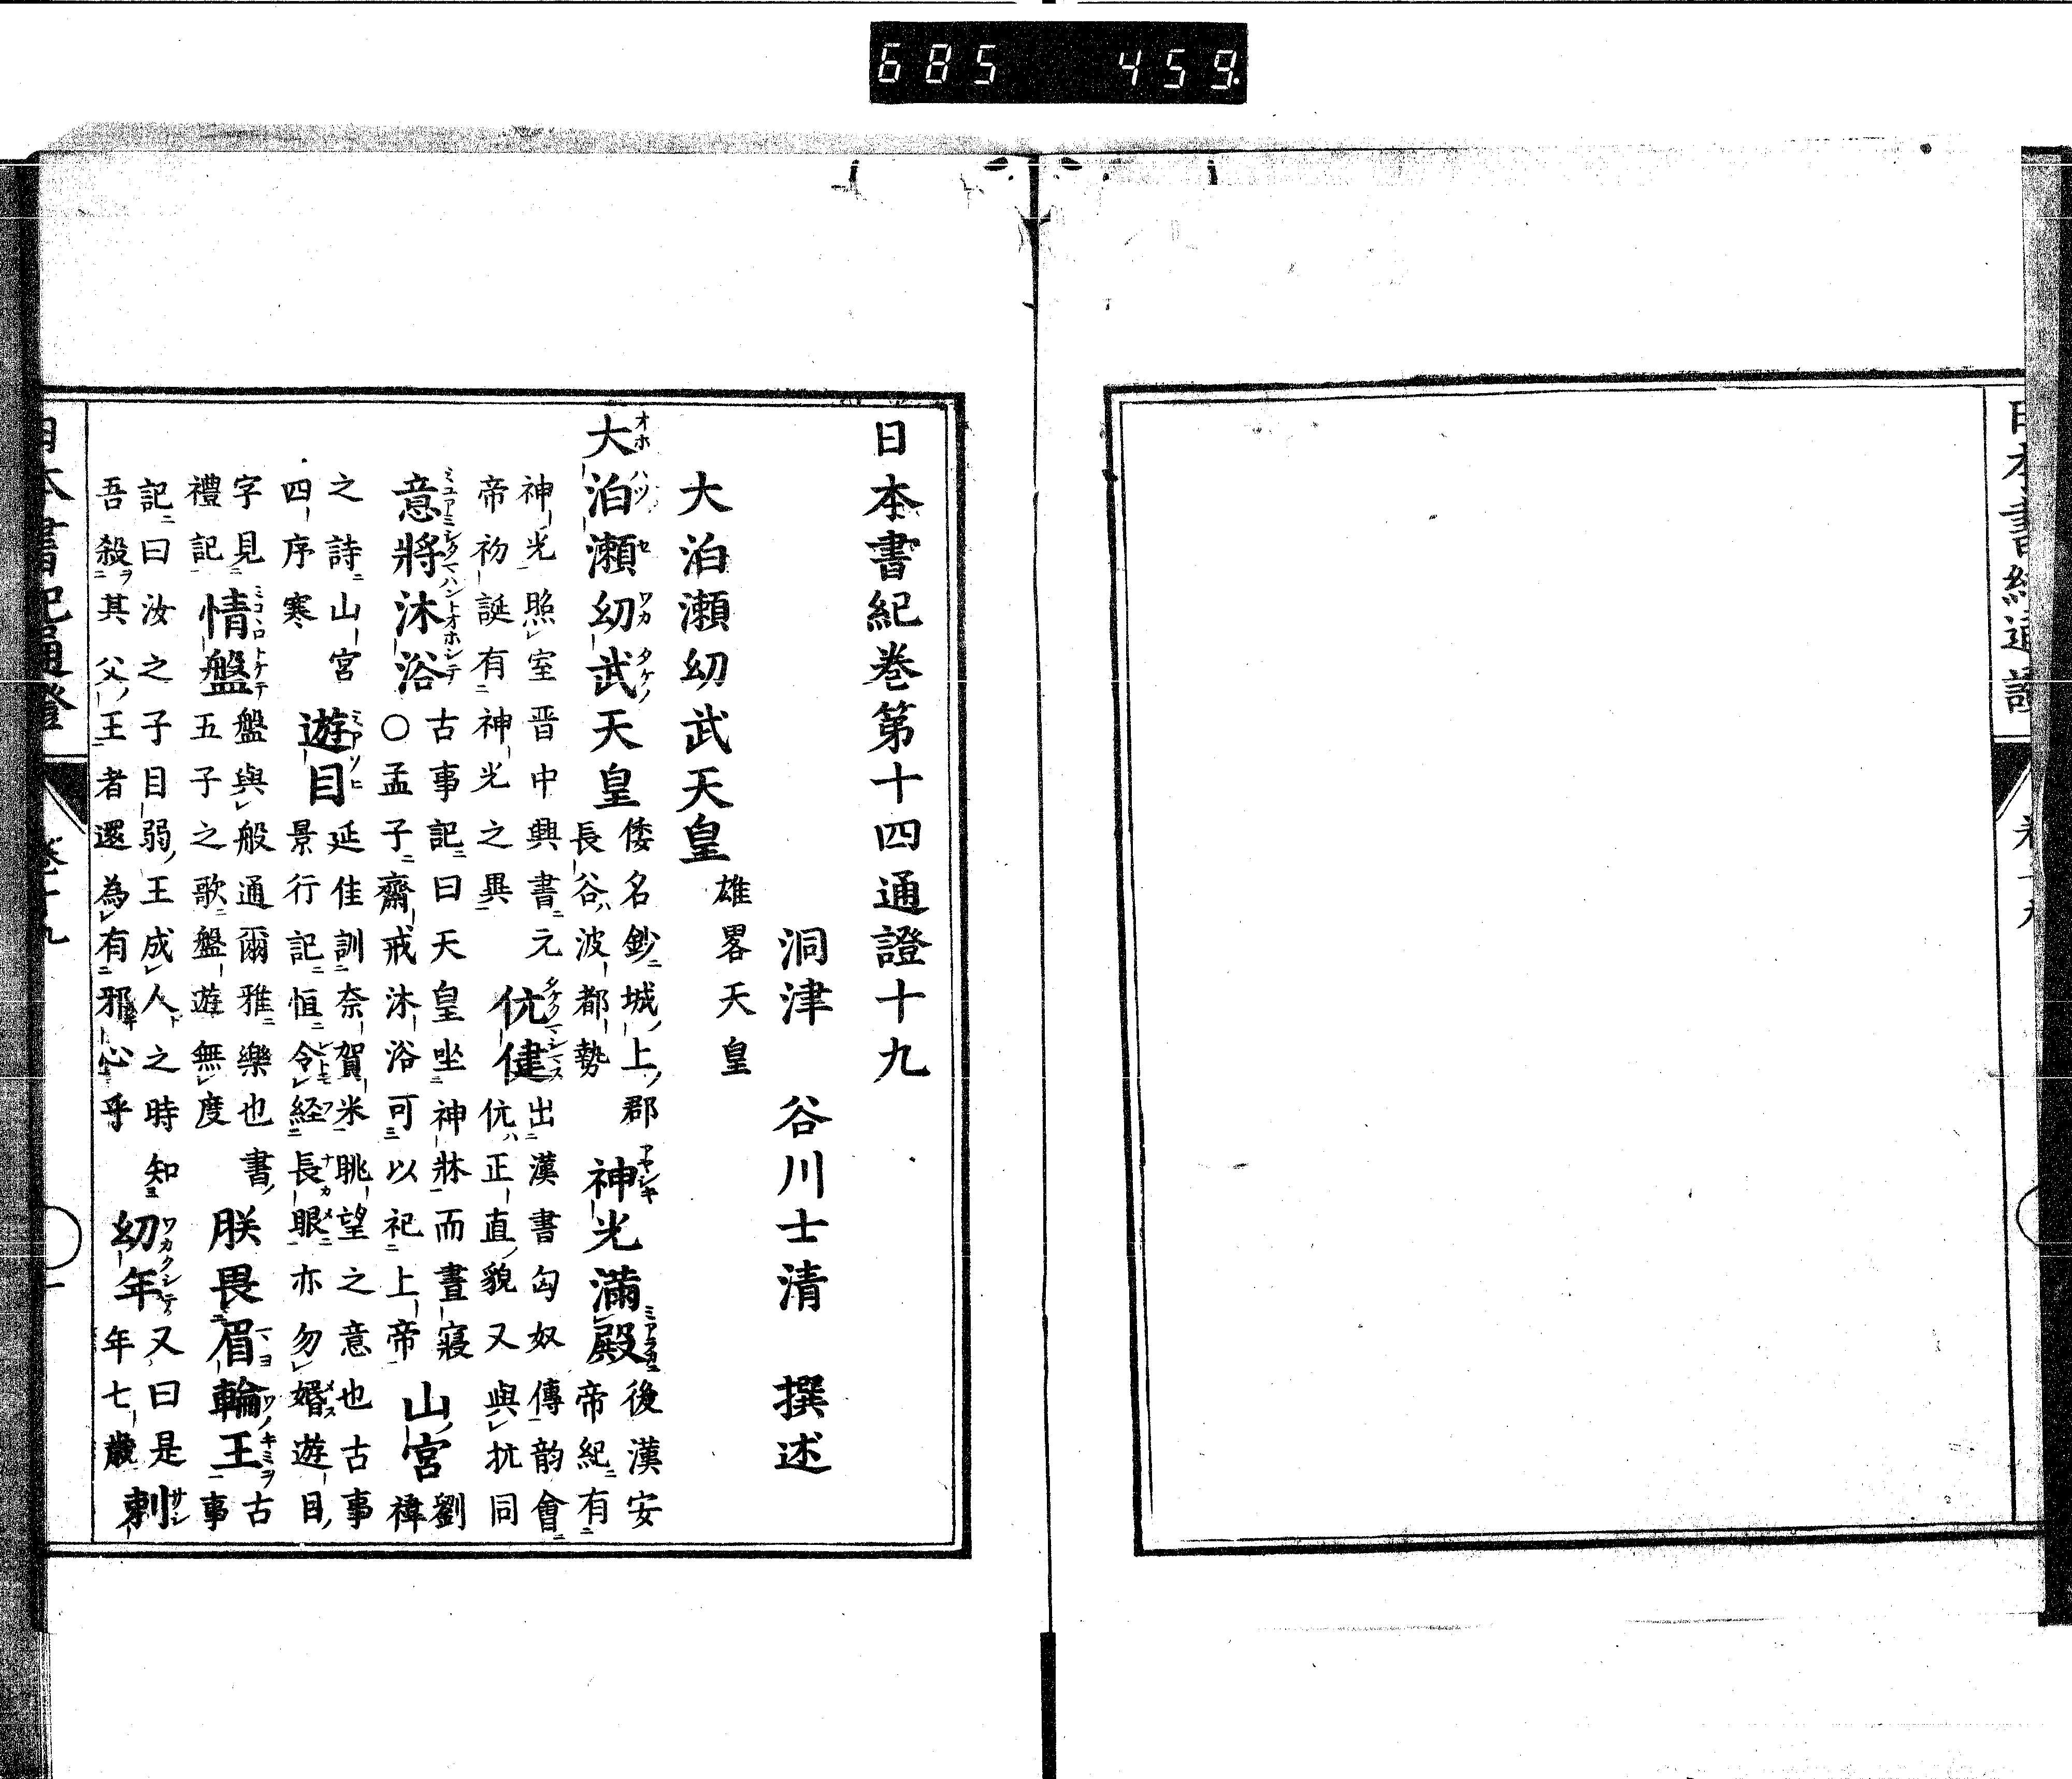 685 459
日本書紀巻第十四通證十九
洞津 谷川士清 撰述
大泊瀬幼武天皇 雄畧天皇
大泊瀬幼武天皇 倭名鈔城上郡長谷波都勢 神光満殿 後漢安帝紀有
神光照室晋中興書元帝初誕有神光之異 伉健 出漢書匈奴傳韵會伉正直貌又與抗同
意將沐浴 古事記曰天皇坐神牀而晝寢○孟子齋戒沐浴可以祀上帝 山宮 劉禕
之詩山宮四序寒 遊目 延佳訓奈賀米眺望之意也古事景行記恒令経長眼亦勿婚遊目
字見禮記 情盤 盤與般通爾雅樂也書五子之歌盤遊無度 朕畏眉輪王 古事
記曰汝之子目弱王成人之時知吾殺其父王者還為有邪心乎 幼年 又曰是年七歳 刺